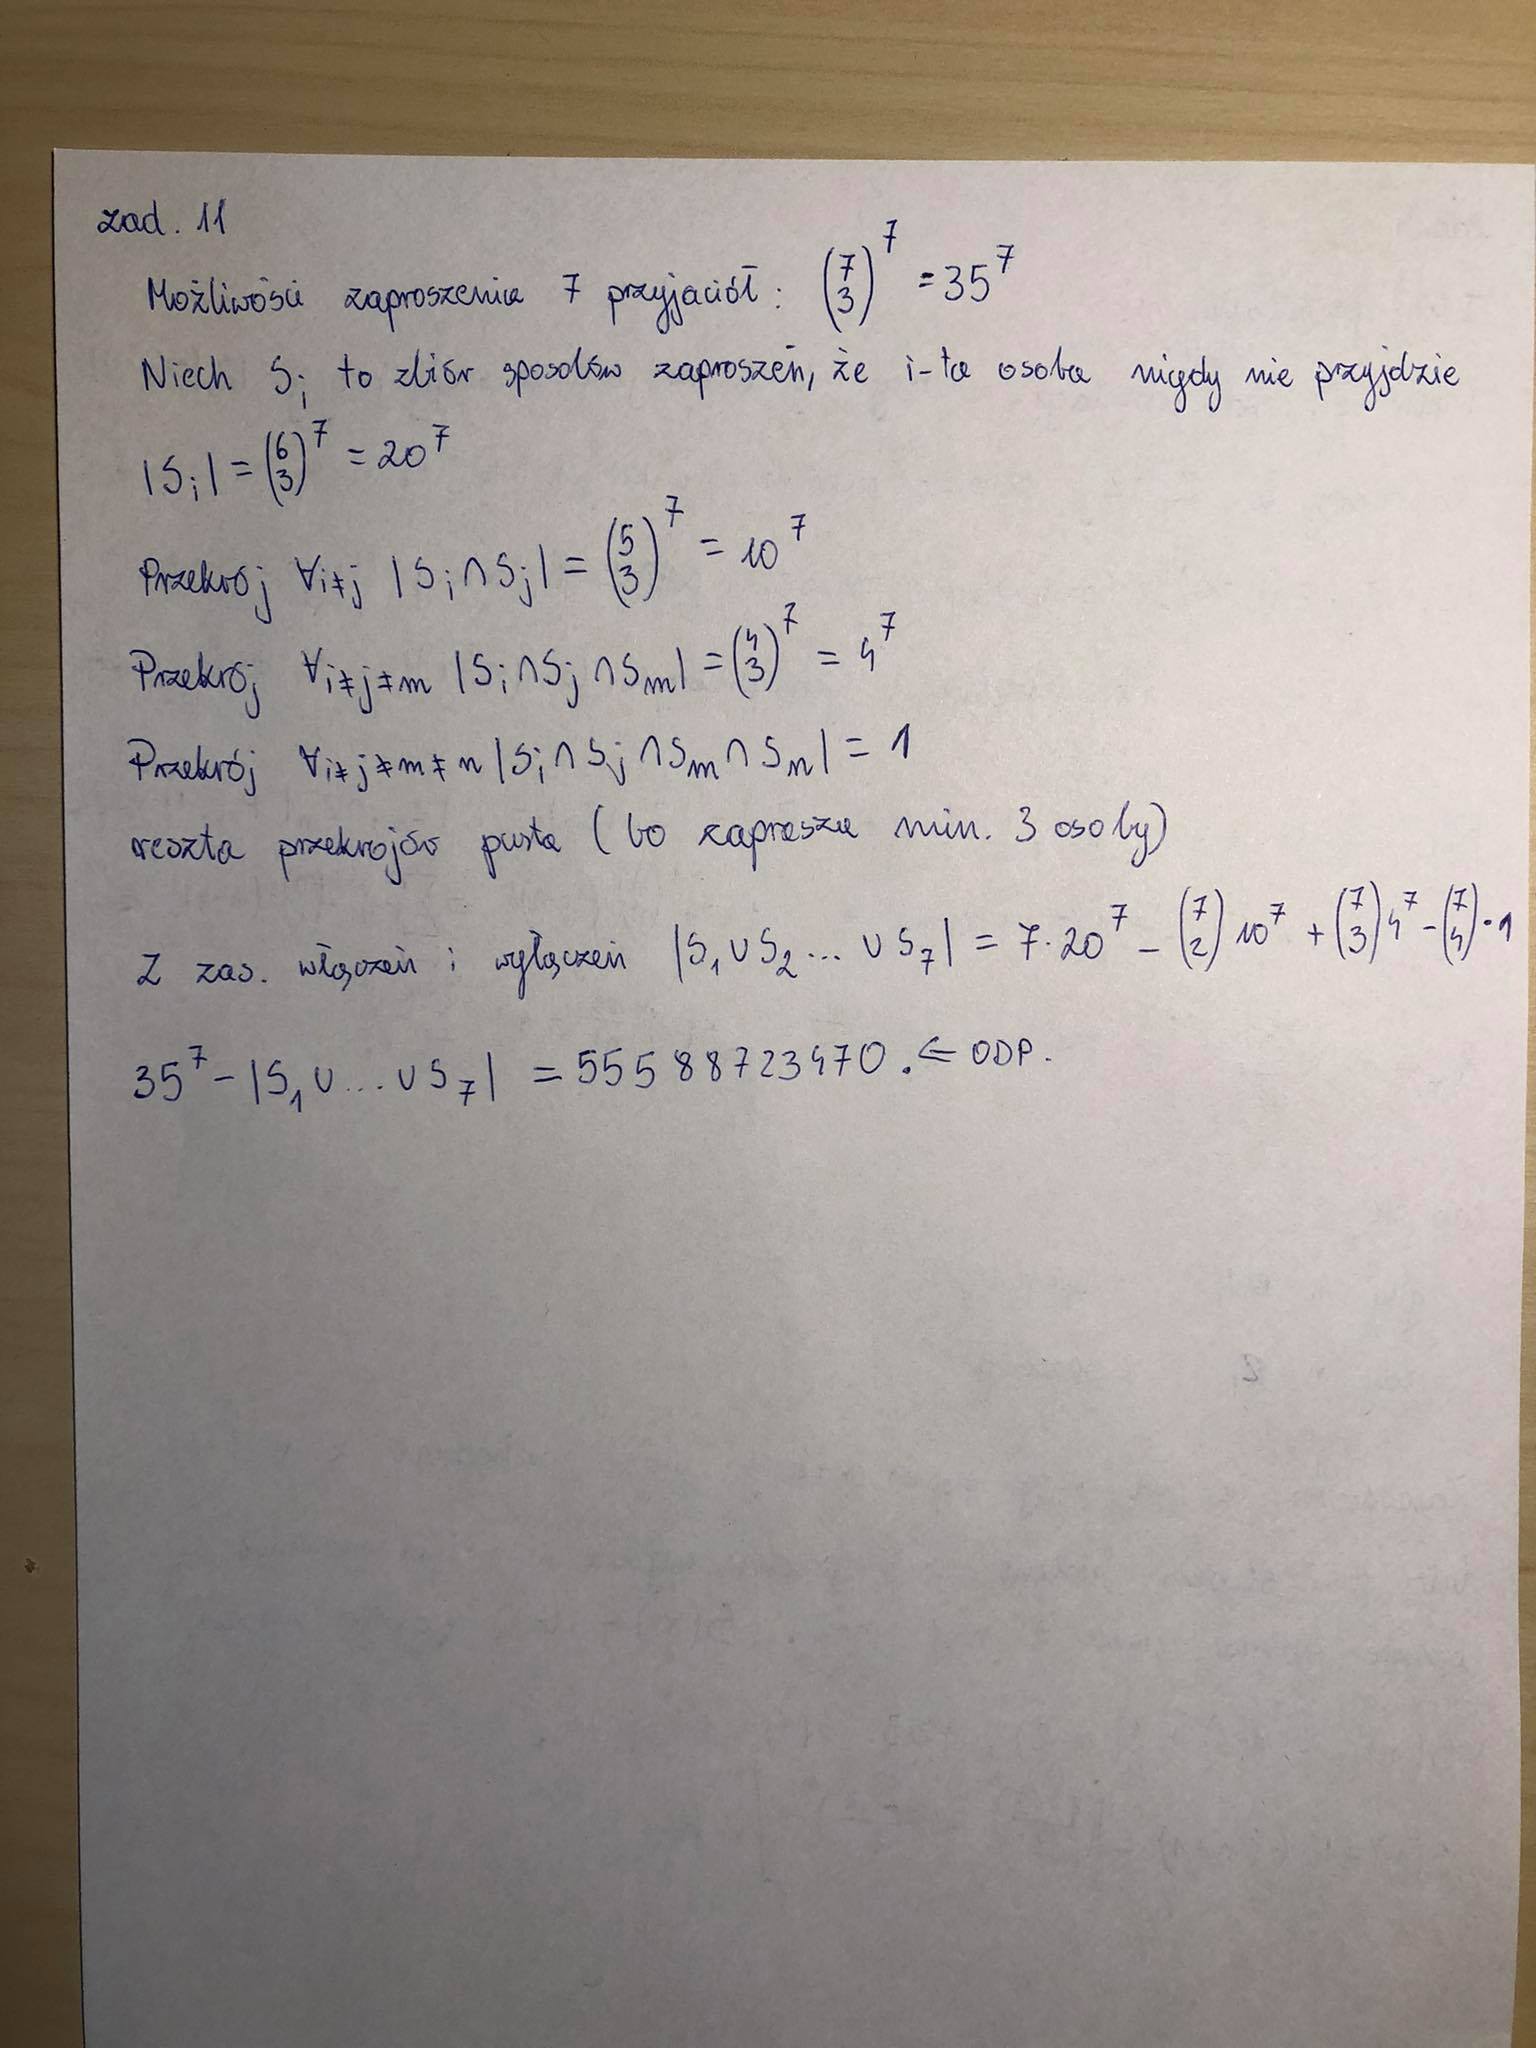 zad. 11
Możliwości zaproszenia 7 przyjaciół: (7 3)^7 = 35^7
Niech S_i to zbiór sposobów zaproszeń, że i-ta osoba nigdy nie przyjdzie
|S_i| = (6 3)^7 = 20^7
Przekrój ∀i≠j |S_i ∩ S_j| = (5 3)^7 = 10^7
Przekrój ∀i≠j≠m |S_i ∩ S_j ∩ S_m| = (4 3)^7 = 4^7
Przekrój ∀i≠j≠m≠n |S_i ∩ S_j ∩ S_m ∩ S_n| = 1
reszta przekrojów pusta (bo zaprasza min. 3 osoby)
Z zas. włączeń i wyłączeń |S_1 ∪ S_2 ... ∪ S_7| = 7·20^7 - (7 2) 10^7 + (7 3) 4^7 - (7 4)·1
35^7 - |S_1 ∪ ... ∪ S_7| = 55588723470. ⇐ ODP.